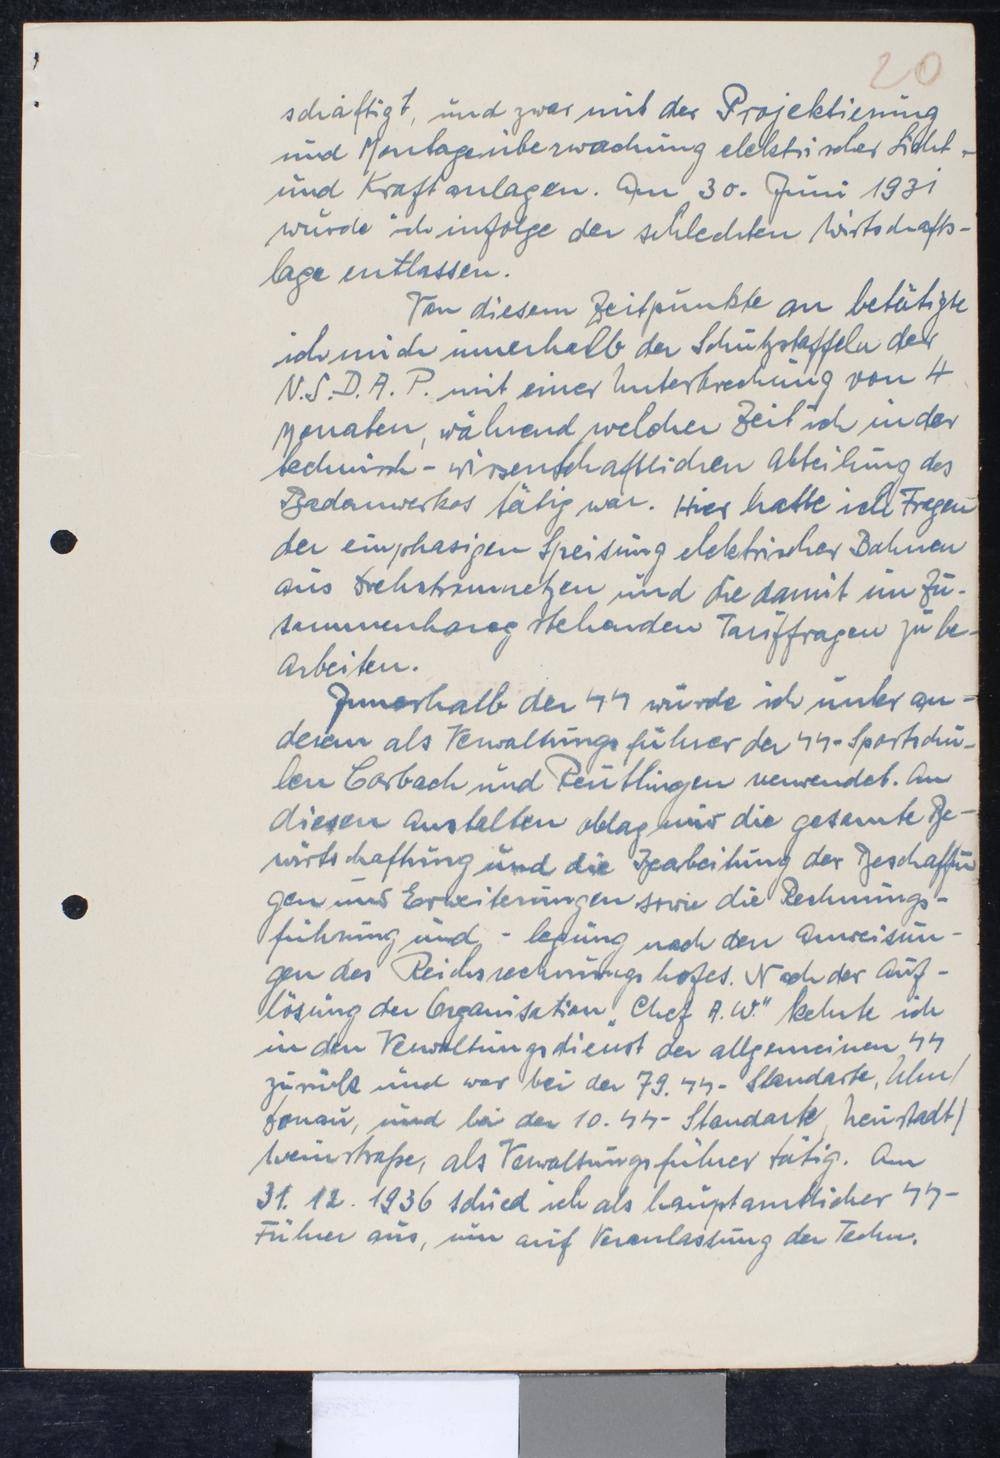 20
schäftigt, und zwar mit der Projektierung
und Montageüberwachung elektrischer Licht-
und Kraftanlagen. Am 30. Juni 1931
wurde ich infolge der schlechten Wirtschafts-
lage entlassen.
Von diesem Zeitpunkte an betätigte
ich mich innerhalb der Schutzstaffeln der
N.S.D.A.P. mit einer Unterbrechung von 4
Monaten, während welcher Zeit ich in der
technisch-wissenschaftlichen Abteilung des
Badenwerkes tätig war. Hier hatte ich Fragen
der einphasigen Speisung elektrischer Bahnen
aus Drehstromnetzen und die damit im Zu-
sammenhang stehenden Tariffragen zu be-
arbeiten.
Innerhalb der SS wurde ich unter an-
derem als Verwaltungsführer der SS-Sportschu-
len Corbach und Reutlingen verwendet. An
diesen Anstalten oblag mir die gesamte Be-
wirtschaftung und die Bearbeitung der Beschaffun
gen und Erweiterungen sowie die Rechnungs-
führung und -legung nach den Anweisun-
gen des Reichsrechnungshofes. Nach der Auf-
lösung der Organisation „Chef A.W." kehrte ich
in den Verwaltungsdienst der allgemeinen SS
zurück und war bei der 79. SS-Standarte, Ulm/
Donau, und bei der 10. SS-Standarte, Neustadt/
Weinstraße, als Verwaltungsführer tätig. Am
31. 12. 1936 schied ich als hauptamtlicher SS-
Führer aus, um auf Veranlassung der Techn.